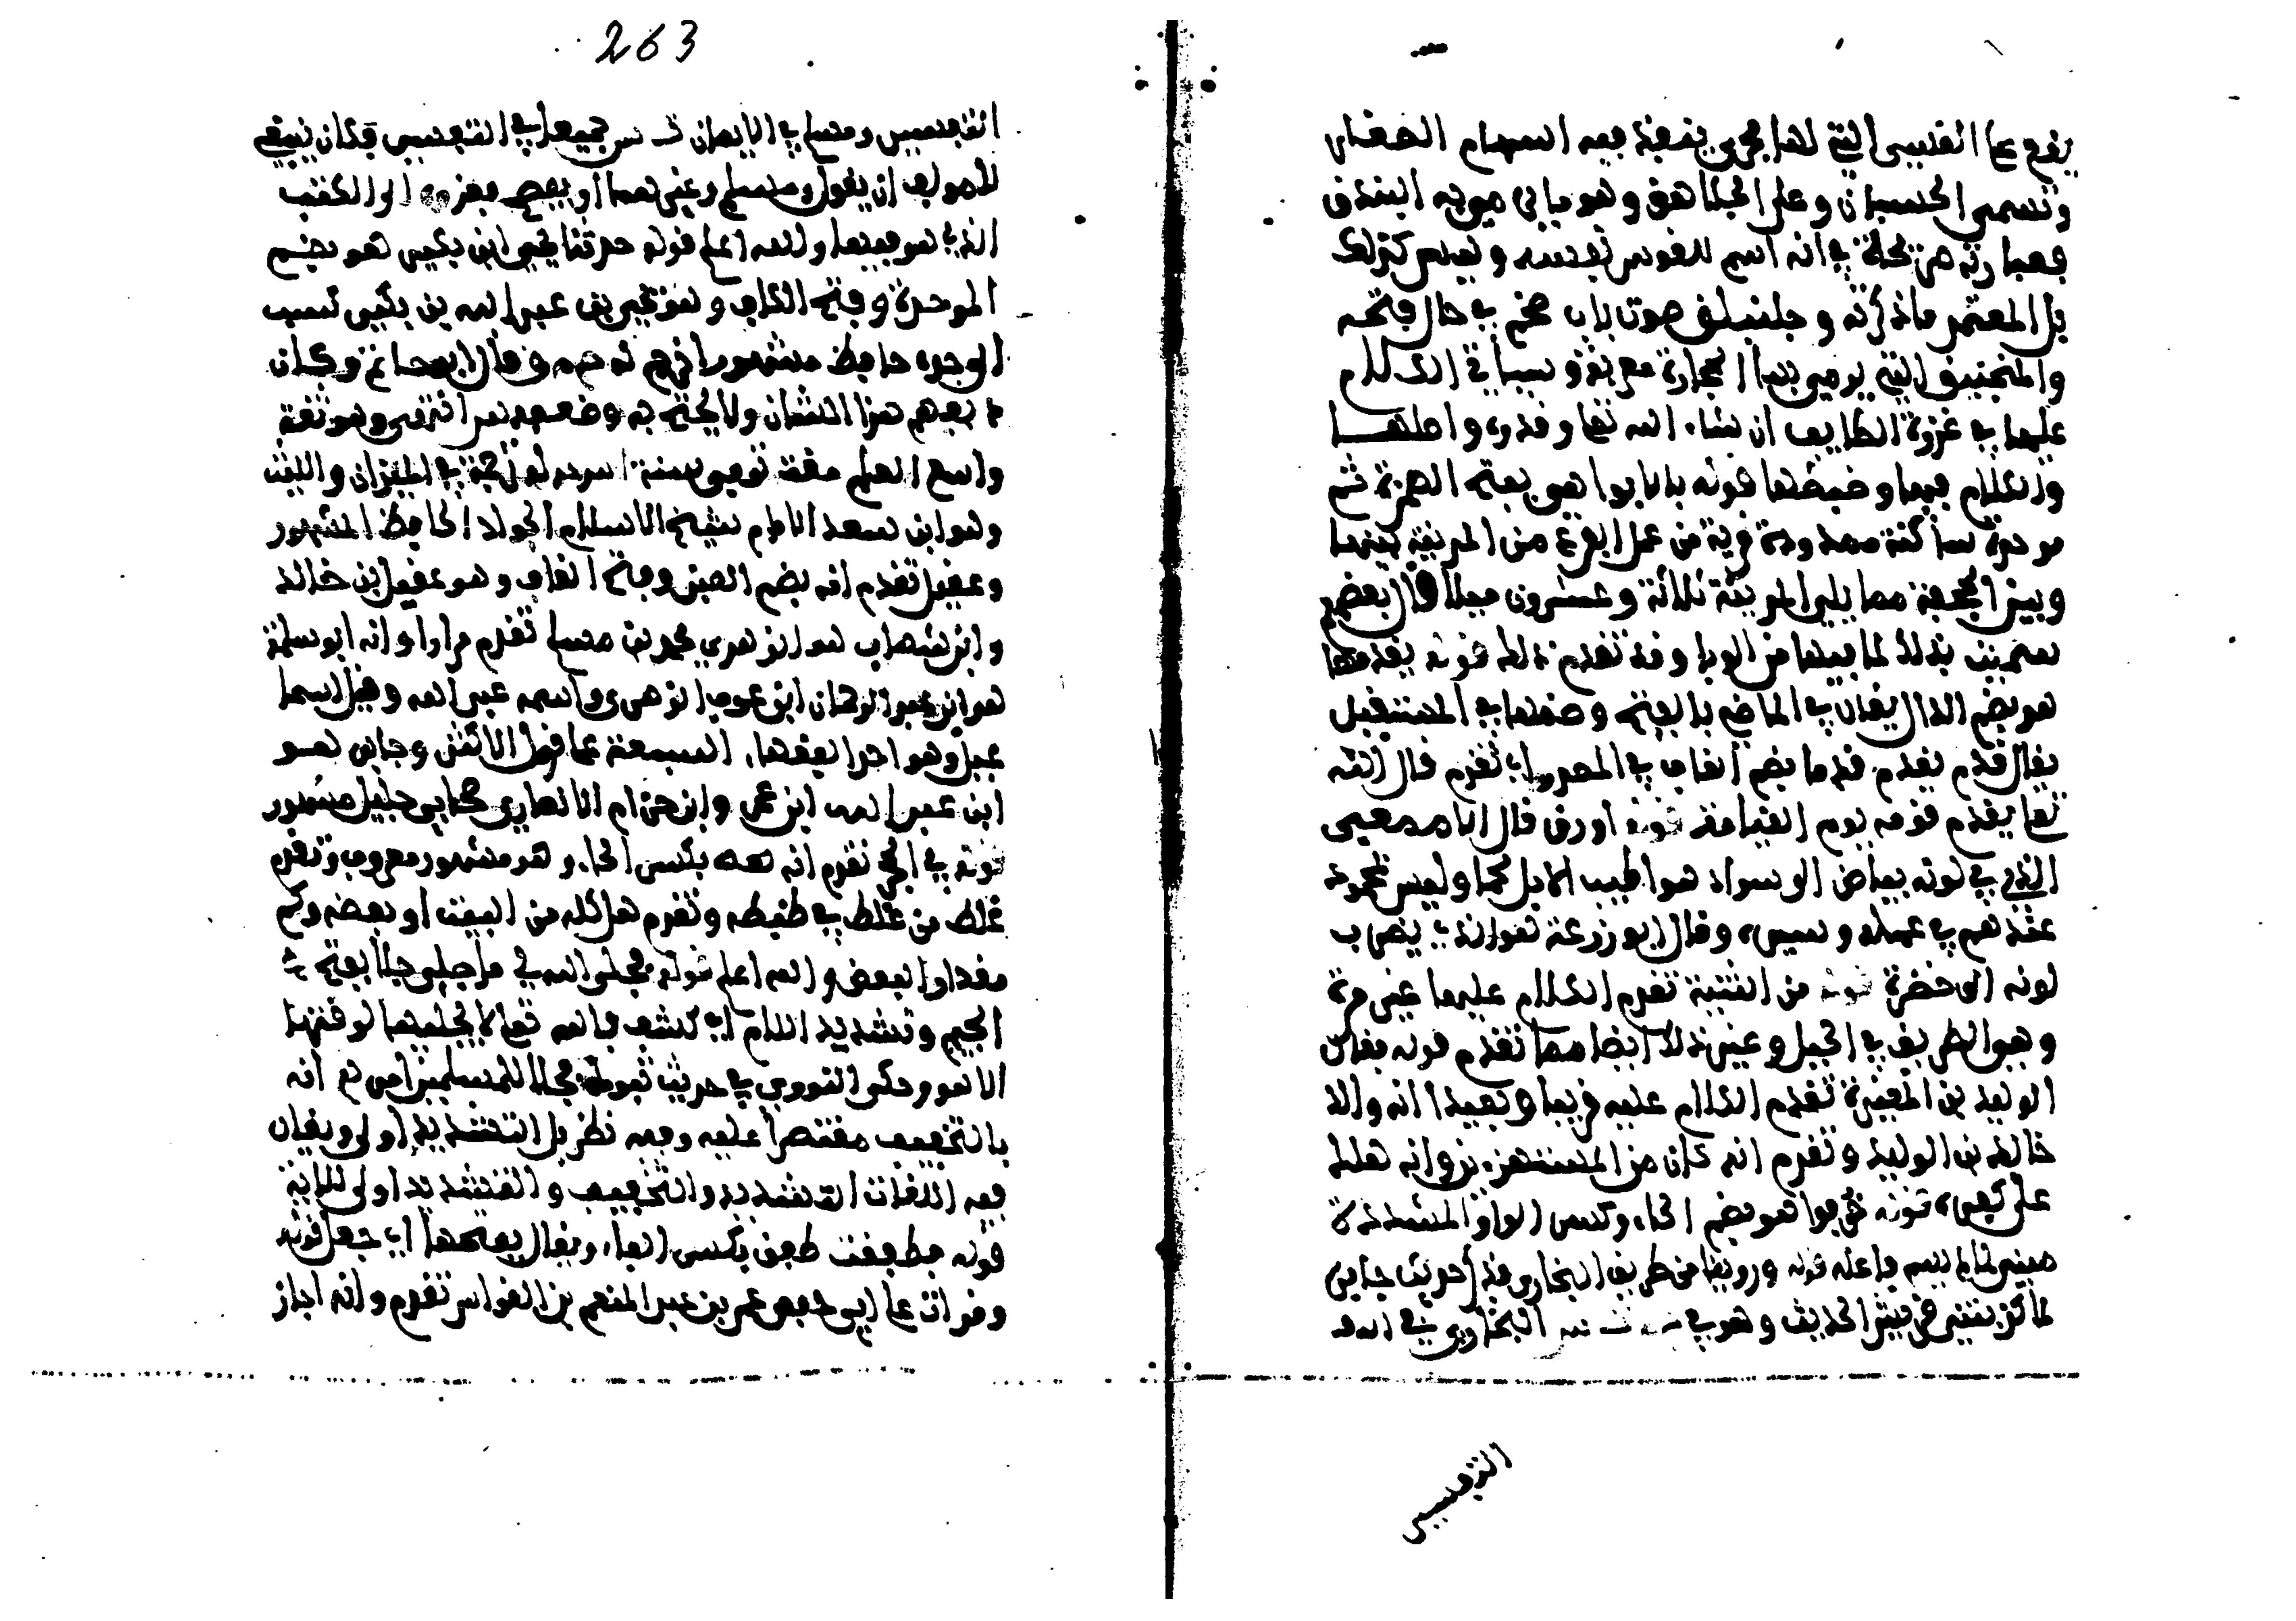 يقع على القسي التي لها مجرى ينفذ فيه السهام الصغار
وتسمى الحسبان وعلى الجلاهق وهو ما يرمى به البندق
فعبارته مزحلة في انه اسم للقوس نفسه وليس كذلك
بل المعتمد ما ذكرته وجلنبلق صوت باب ضخم في حال فتحه
والمنجنيق التي يرمى بها الحجارة معربة وسياتي الكلام
عليها في غزوة الطايف ان شاء الله تعا وقدره واصلها
والكلام فيها وضبطها قوله بالابوا هي بفتح الهمزة ثم
موحدة ساكنة ممدودة قرية من عمل الفرع من المدينة بينها
وبين الجحفة مما يلي المدينة ثلاثة وعشرون ميلا قال بعضهم
سميت بذلك لما فيها من الوبا وقد تقدم ذلك قوله يقدمها
هو بضم الدال يقال في الماضي بالفتح وضمها في المستقبل
يقال قدم يقدم قدما بضم القاف في المصدر اي تقدم قال الله
تعا يقدم قومه يوم القيامة قوله اورق قال الاصمعي
الذي في لونه بياض الى سواد هو اطيب الابل لحما وليس بمحمود
عندهم في عمله وسيره وقال ابو زرعة هو الذي يضرب
لونه الى خضرة قوله من الثنية تقدم الكلام عليها غير مرة
وهو الطريق في الجبل وغير ذلك ايضا مما تقدم قوله فقال
الوليد بن المغيرة تقدم الكلام عليه قريبا وبعيدا انه والد
خالد بن الوليد وتقدم انه كان من المستهزءين وانه هلك
على كفره قوله خوفوا هو بضم الخاء وكسر الواو المشددة
مبني لما لم يسم فاعله قوله وروينا من طريق البخاري فذكر حديث جابر
لما كذبتني قريش الحديث وهو في البخاري في
التفسير
263
التفسير ومسلم في الايمان جميعا في التفسير فكان ينبغي
للمولف ان يقول ومسلم وغيرهما او يعزوه الى الكتب
الذي هو فيها والله اعلم قوله حدثنا يحيى ابن بكير هو بضم
الموحدة وفتح الكاف وهو يحيى بن عبد الله بن بكير نسب
الى جده حافظ مشهور اخرج له وقال ابو حاتم وكان
يفهم هذا الشان ولا يحتج به وضعفه النسائي وهو ثقة
واسع العلم مفت توفي سنة له ترجمة في الميزان والليث
وهو ابن سعد الامام شيخ الاسلام الجواد الحافظ المشهور
وعقيل تقدم انه بضم العين وفتح القاف وهو عقيل بن خالد
وابن شهاب هو الزهري محمد بن مسلم تقدم مرارا وانه ابو سلمة
هو ابن عبد الرحمان ابن عوف الزهري واسمه عبد الله وقيل اسما
عيل وهو احد الفقهاء السبعة على قول الاكثر وجابر هو
ابن عبد الله ابن عمرو ابن حرام الانصاري صحابي جليل مشهور
قوله في الحجر تقدم انه بكسر الحاء وهو مشهور معروف وتقدم
غلط من غلط في ضبطه وتقدم هل كله من البيت او بعضه وكم
مقدار البعض والله اعلم قوله فجلى الله لي ما جلى جلا بفتح
الجيم وتشديد اللام اي كشف قال الله تعا لا يجليها لوقتها
الا هو وحكى النووي في حديث فجلا للمسلمين امرهم انه
بالتخفيف مقتصرا عليه وفيه نظر بل التشديد اولى ويقال
فيه اللغات التشديد والتخفيف والتشديد اولى للاية
قوله فطفقت طفق بكسر الفاء ويقال بفتحها اي جعل قوله
وقرات على ابي حفص عمر بن عبد المنعم بن القواس تقدم وانه اجاز